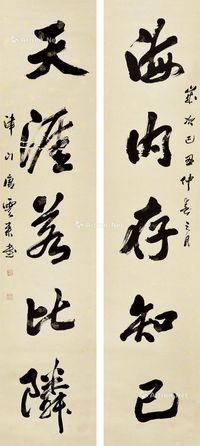 海内存知己
岁次己丑仲春之月
天涯若比隣
津门唐云来书